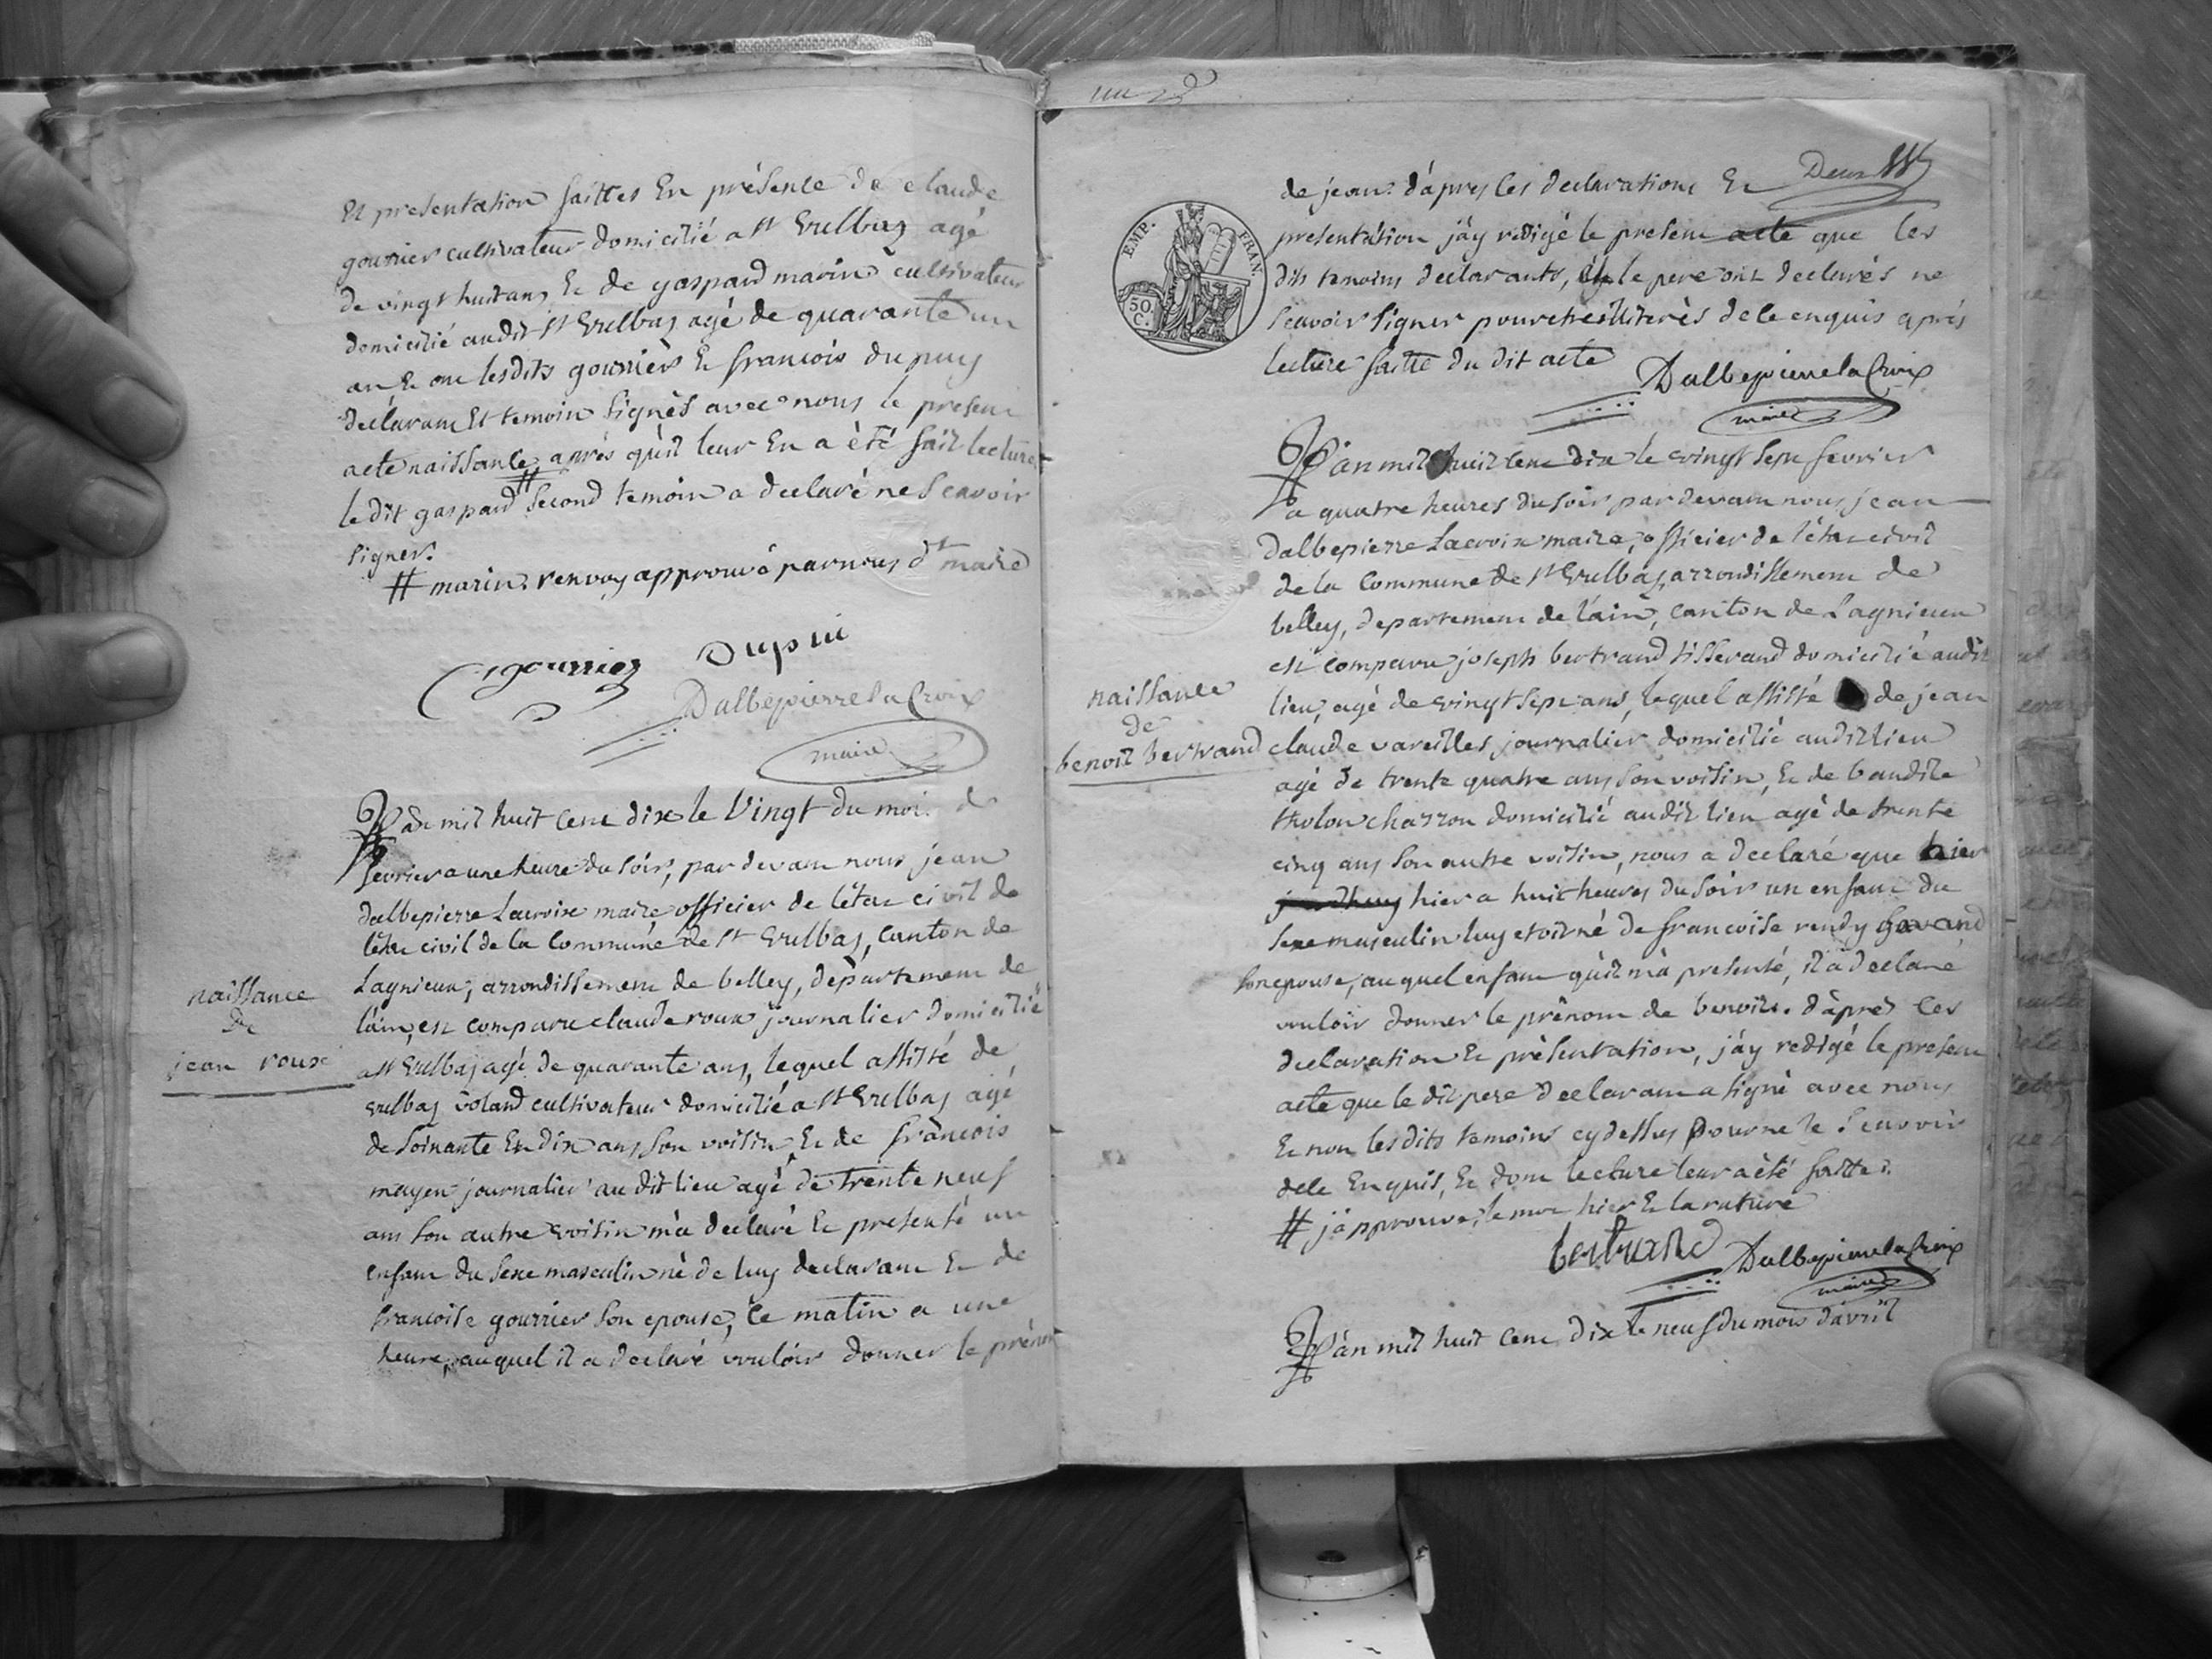 Et presentation faittes En présence de claude
gourrier cultivateur domicilié a st Vulbaz agé
de vingt huit ans Et de gaspard marin cultivateur
domicilié audit st Vulbas agé de quarante un
an & ont lesdits gourrier & francois dupuy
déclarant Et temoin signès avec nous le present
acte naissance # après qu'il leur En a èté fait lecture,
le dit gaspard second temoin a declaré ne Scavoir
signer.
# marin. renvoy approuvé par nous dt maire
gourrier Dupui
Dalbepierre la Croix
maire
naissance
de
jean roux
L'an mil huit cent dix le Vingt du moi de
fevrier a une heure du soir, par devant nous jean
dalbepierre Lacroix maire officier de l'état civil de
l'état civil de la Commune de st Vulbas, canton de
Lagnieux, arrondissement de belley, dèpartement de
l'ain, est comparu claude roux journalier domicilié
a st Vulbas agé de quarante ans, lequel assisté de
vulbas voland cultivateur domicilié a st Vulbas agé
de soixante Et dix ans son voisin Et de francois
mayen journalier au dit lieu agé de trente neuf
ans son autre voisin m'a declaré Et presenté un
enfant du sexe masculin né de luy declarant Et de
francoise gourrier son epouse, ce matin a une
heure, auquel il a declaré vouloir donner le prénom
Deux
de jean. d'après les declarations Et
presentation j'ay redigé le present acte que les
dits temoins declarants, Et le pere ont declarés ne
scavoir signer pour etre illiterès de le enquis après
lecture faitte du dit acte
Dalbepierre la Croix
maire
EMP. FRAN.
50 C.
naissance
de
benoit bertrand
L'an mil huit cent dix le vingt sept fevrier
a quatre heures du soir par devant nous jean
Dalbepierre Lacroix maire, officier de l'état civil
de la Commune de st Vulbas, arrondissement de
belley, departement de l'ain, canton de Lagnieux
est comparu joseph bertrand tisserand domicilié audit
lieu, agé de vingt sept ans, lequel assisté de jean
claude vareilles journalier domicilié audit lieu
agé de trente quatre ans son voisin, Et de baudile
tholon charron domicilié audit lieu agé de trente
cinq ans son autre voisin, nous a declaré que hier
hier a huit heures du soir un enfant du
sexe masculin luy etoit né de francoise rendy
son epouse, auquel enfant qu'il m'a presenté, il a declaré
vouloir donner le prénom de benoit. d'après les
declaration Et prèsentation, j'ay redigé le present
acte que le dit pere declarant a signé avec nous
Et non les dits temoins cydessus pour ne le Scavoir
dele Enquis, Et dont lecture leur a èté faitte.
# j'approuve, le mot hier Et la rature
bertrand Dalbepierre la Croix
maire
L'an mil huit cent dix le neuf du mois d'avril